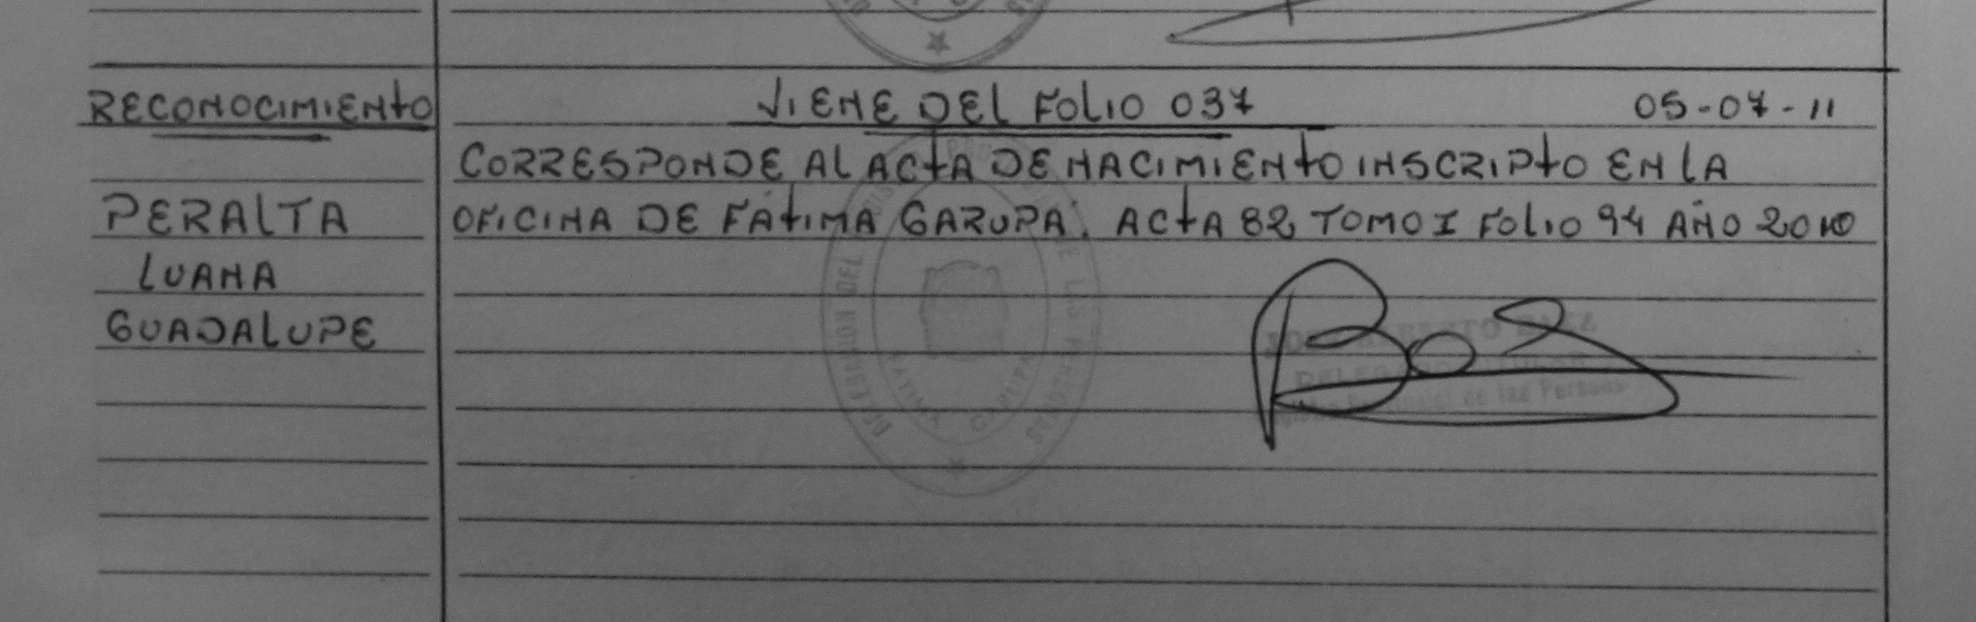 RECONOCIMIENTO VIENE DEL FOLIO 037 05-07-11
CORRESPONDE AL ACTA DE NACIMIENTO INSCRIPTO EN LA
PERALTA OFICINA DE FÁTIMA GARUPA. ACTA 82 TOMO I FOLIO 94 AÑO 2010
LUANA
GUADALUPE
DELEGACION DEL REGISTRO PROVINCIAL DE LAS PERSONAS
FATIMA GARUPA
DELEGADO TITULAR
Provincial de las Personas